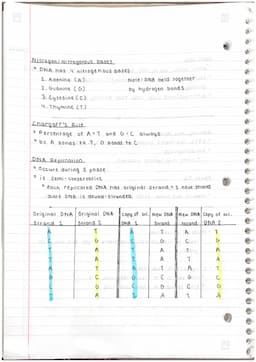 Nitrogen/Nitrogenous Bases
* DNA has 4 nitrogenous bases
1. Adenine (A)
Note: DNA held together
2. Guanine (G)
by hydrogen bonds
3. Cytosine (C)
4. Thymine (T)
Chargaff's Rule
* Percentage of A=T and G=C always
* So A bonds to T, G bonds to C
DNA Replication
* Occurs during S phase
* is semi-conservative
* each replicated DNA has original strand + 1 new strand
Original DNA Original DNA Copy of ori. New DNA New DNA Copy of ori.
Strand 1 Strand 2 DNA 1 Strand Strand DNA 2
A T A T A T
C G C G C G
T A T A T A